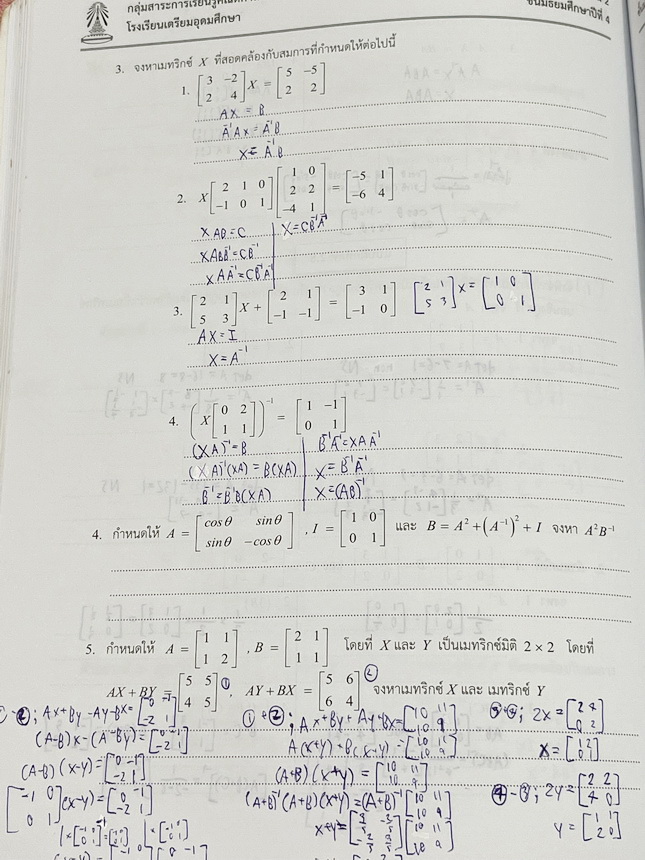 โรงเรียนเตรียมอุดมศึกษา
ชั้นมัธยมศึกษาปีที่ 4
3. จงหาเมทริกซ์ X ที่สอดคล้องกับสมการที่กำหนดให้ต่อไปนี้
1. [3 -2; 2 4] X = [5 -5; 2 2]
AX = B
A⁻¹AX = A⁻¹B
X = A⁻¹B
2. X [2 1 0; -1 0 1] [1 0; 2 2; -4 1] = [-5 1; -6 4]
XAB = C
X = CB⁻¹A⁻¹
XABB⁻¹ = CB⁻¹
XAA⁻¹ = CB⁻¹A⁻¹
3. [2 1; 5 3] X + [2 1; -1 -1] = [3 1; -1 0] [2 1; 5 3] X = [1 0; 0 1]
AX = I
X = A⁻¹
4. (X [0 2; 1 1])⁻¹ = [1 -1; 0 1]
(XA)⁻¹ = B
B⁻¹A⁻¹ = XAA⁻¹
(XA)⁻¹(XA) = B(XA)
X = B⁻¹A⁻¹
B⁻¹ = B⁻¹B(XA)
X = (AB)⁻¹
4. กำหนดให้ A = [cos θ sin θ; sin θ -cos θ] , I = [1 0; 0 1] และ B = A² + (A⁻¹)² + I จงหา A²B⁻¹
5. กำหนดให้ A = [1 1; 1 2] , B = [2 1; 1 1] โดยที่ X และ Y เป็นเมทริกซ์มิติ 2 × 2 โดยที่
AX + BY = [5 5; 4 5] ① , AY + BX = [5 6; 6 4] ② จงหาเมทริกซ์ X และ เมทริกซ์ Y
① - ② ; AX + BY - AY - BX = [0 -1; -2 1]
(A-B)X - (A-B)Y = [0 -1; -2 1]
(A-B)(X-Y) = [0 -1; -2 1]
[-1 0; 0 1] (X-Y) = [0 -1; -2 1]
① + ② ; AX + BY + AY + BX = [10 11; 10 9]
A(X+Y) + B(X+Y) = [10 11; 10 9]
(A+B)(X+Y) = [10 11; 10 9]
(A+B)⁻¹(A+B)(X+Y) = (A+B)⁻¹ [10 11; 10 9]
2X = [2 4; 0 2]
X = [1 2; 0 1]
④ - ③ ; 2Y = [2 2; 4 0]
Y = [1 1; 2 0]